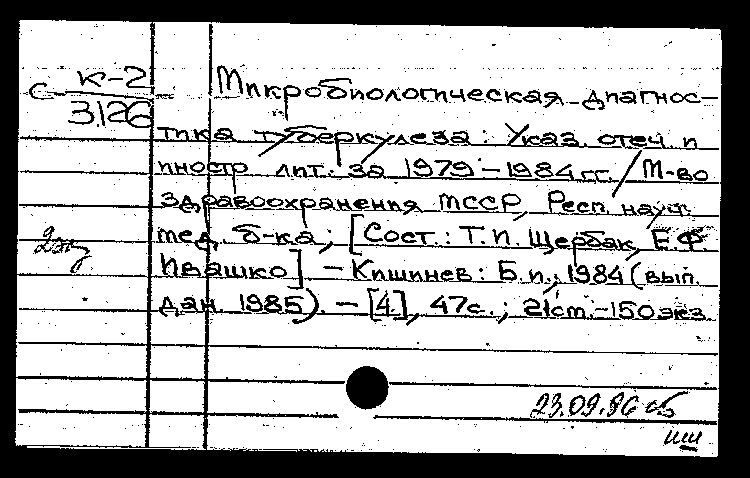 С К-2
3126
Микробиологическая диагнос-
тика туберкулеза: Указ. отеч. и
иностр. лит. за 1979-1984 гг. / М-во
здравоохранения МССР, Респ. науч.
мед. б-ка; [Сост.: Т.П. Щербак, Е.Ф.
Ивашко] - Кишинев: Б.и., 1984 (вып.
дан. 1985). - [4], 47с.; 21см. - 150 экз.
2экз
23.09.86